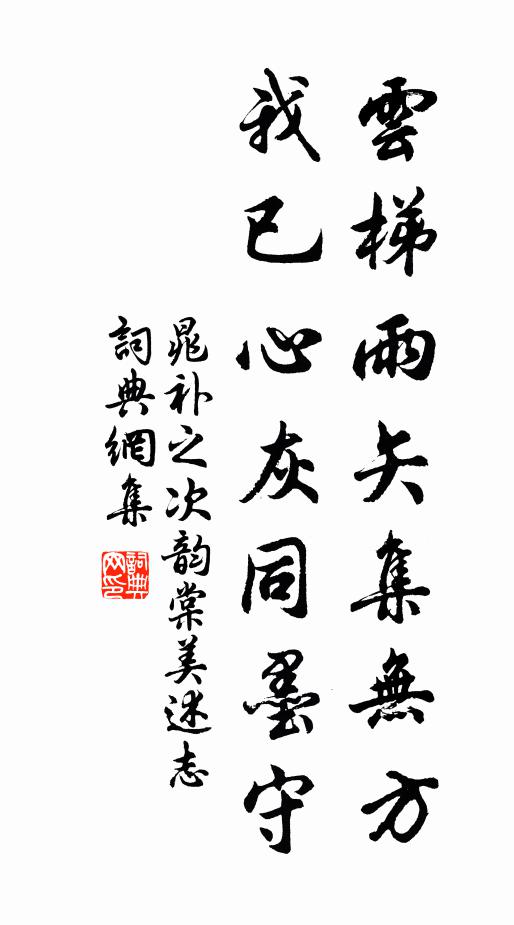 雲梯雨矢集無方
我已心灰同墨守
晁补之次韵棠美述志
詞典網集
詞典网印